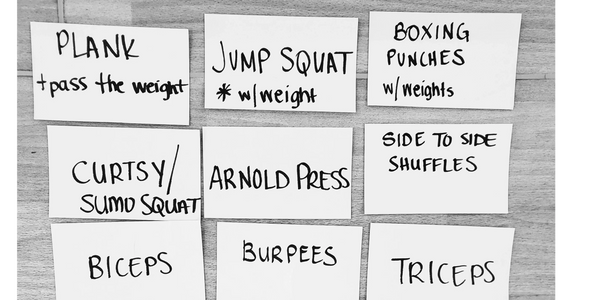 PLANK
+pass the weight
JUMP SQUAT
* w/weight
BOXING
PUNCHES
w/weights
CURTSY/
SUMO SQUAT
ARNOLD PRESS
SIDE TO SIDE
SHUFFLES
BICEPS
BURPEES
TRICEPS